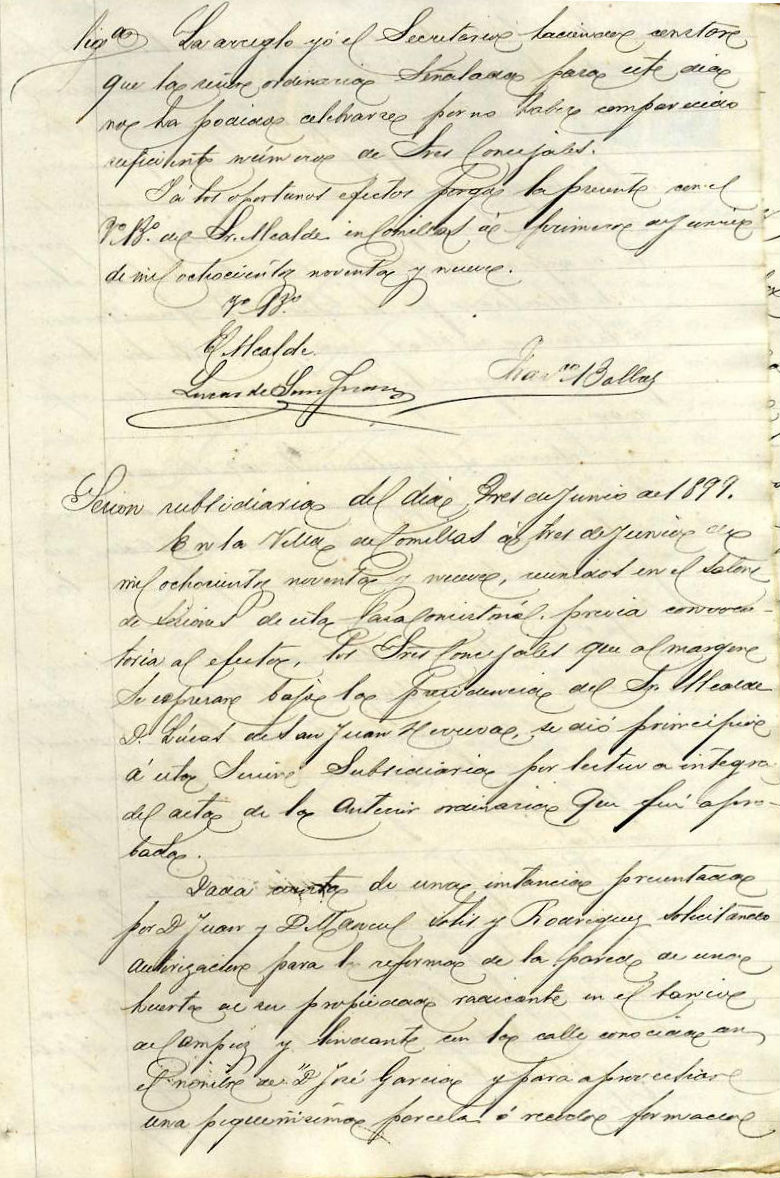 Dig.ª La arreglo yó el Secretario haciendo constar
que la sesion ordinaria señalada para este dia
no ha podido celebrarse por no haber comparecido
suficiente número de Sres Concejales.
Y á los oportunos efectos pongo la presente con el
Vº Bº. del Sr. Alcalde en Comillas á primero de Junio
de mil ochocientos noventa y nueve.
Vº Bº
El Alcalde.
Lucas de San Juan
Sesion subsidiaria del dia tres de Junio de 1899.
En la Villa de Comillas á tres de Junio de
mil ochocientos noventa y nueve, reunidos en el Salon
de Sesiones de esta Casa Consistorial, previa convoca-
toria al efecto, los Sres Concejales que al margen
se espresan bajo la Presidencia del Sr. Alcalde
D. Lúcas de San Juan, se dió principio
á esta Sesion Subsidiaria por lectura integra
del acta de la anterior ordinaria que fué apro-
bada.
Dada cuenta de una instancia presentada
por D Juan y D Manuel Solis y Rodriguez solicitando
autorizacion para la reforma de la pared de una
huerta de su propiedad radicante en el barrio
de Campíos y lindante con la calle conocida con
el nombre de "D José Garcia" y para aprovechar
una pequeñisima parcela ó recodo formado